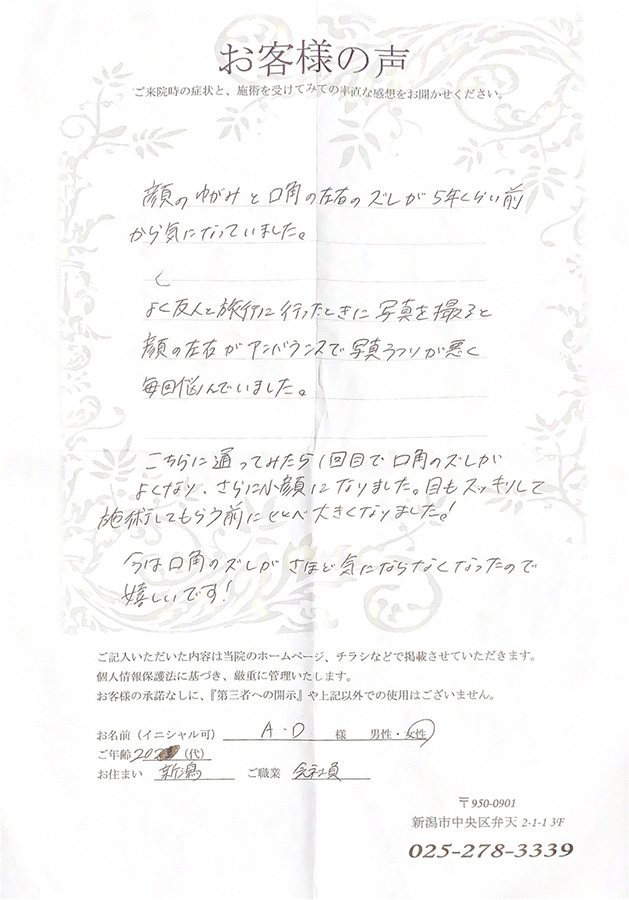 お客様の声
ご来院時の症状と、施術を受けてみての率直な感想をお聞かせください。
顔のゆがみと口角の左右のズレが5年くらい前
から気になっていました。
よく友人と旅行に行ったときに写真を撮ると
顔の左右がアンバランスで写真うつりが悪く
毎回悩んでいました。
こちらに通ってみたら1回目で口角のズレが
よくなり、さらに小顔になりました。目もスッキリして
施術してもらう前に比べ大きくなりました!
今は口角のズレがさほど気にならなくなったので
嬉しいです!
ご記入いただいた内容は当院のホームページ、チラシなどで掲載させていただきます。
個人情報保護法に基づき、厳重に管理いたします。
お客様の承諾なしに、『第三者への開示』や上記以外での使用はございません。
お名前(イニシャル可) A・D 様 男性・女性
ご年齢 20 (代)
お住まい 新潟 ご職業 会社員
〒950-0901
新潟市中央区弁天 2-1-1 3F
025-278-3339